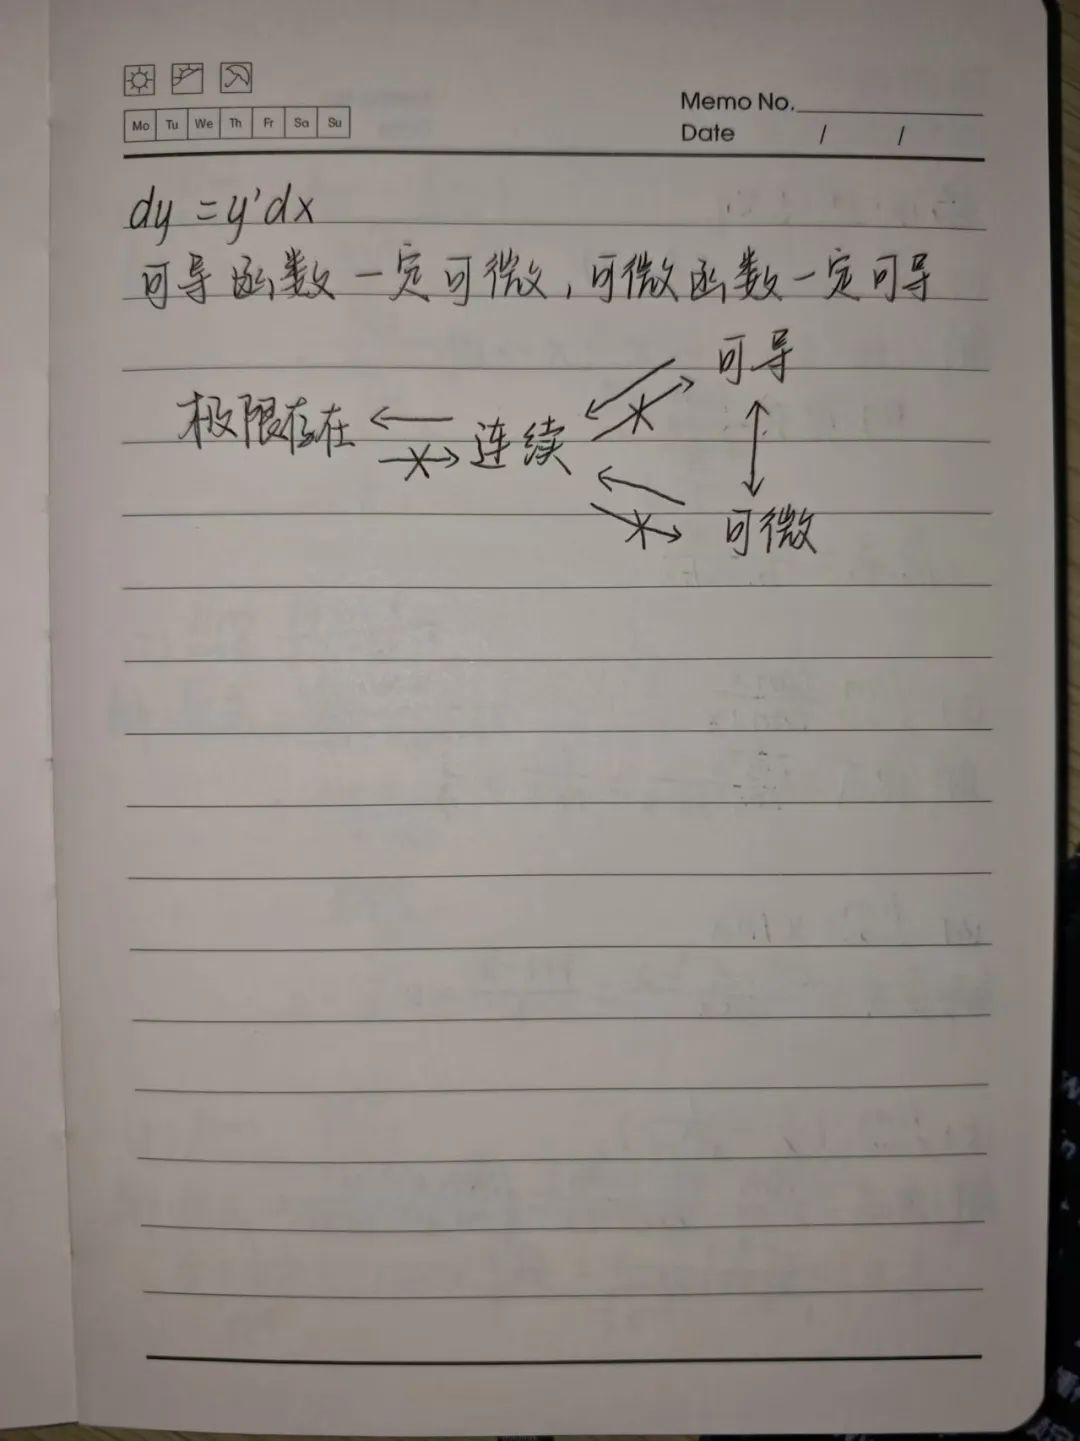 Mo Tu We Th Fr Sa Su
Memo No.
Date / /
dy = y'dx
可导函数一定可微, 可微函数一定可导
可导
极限存在 连续
可微